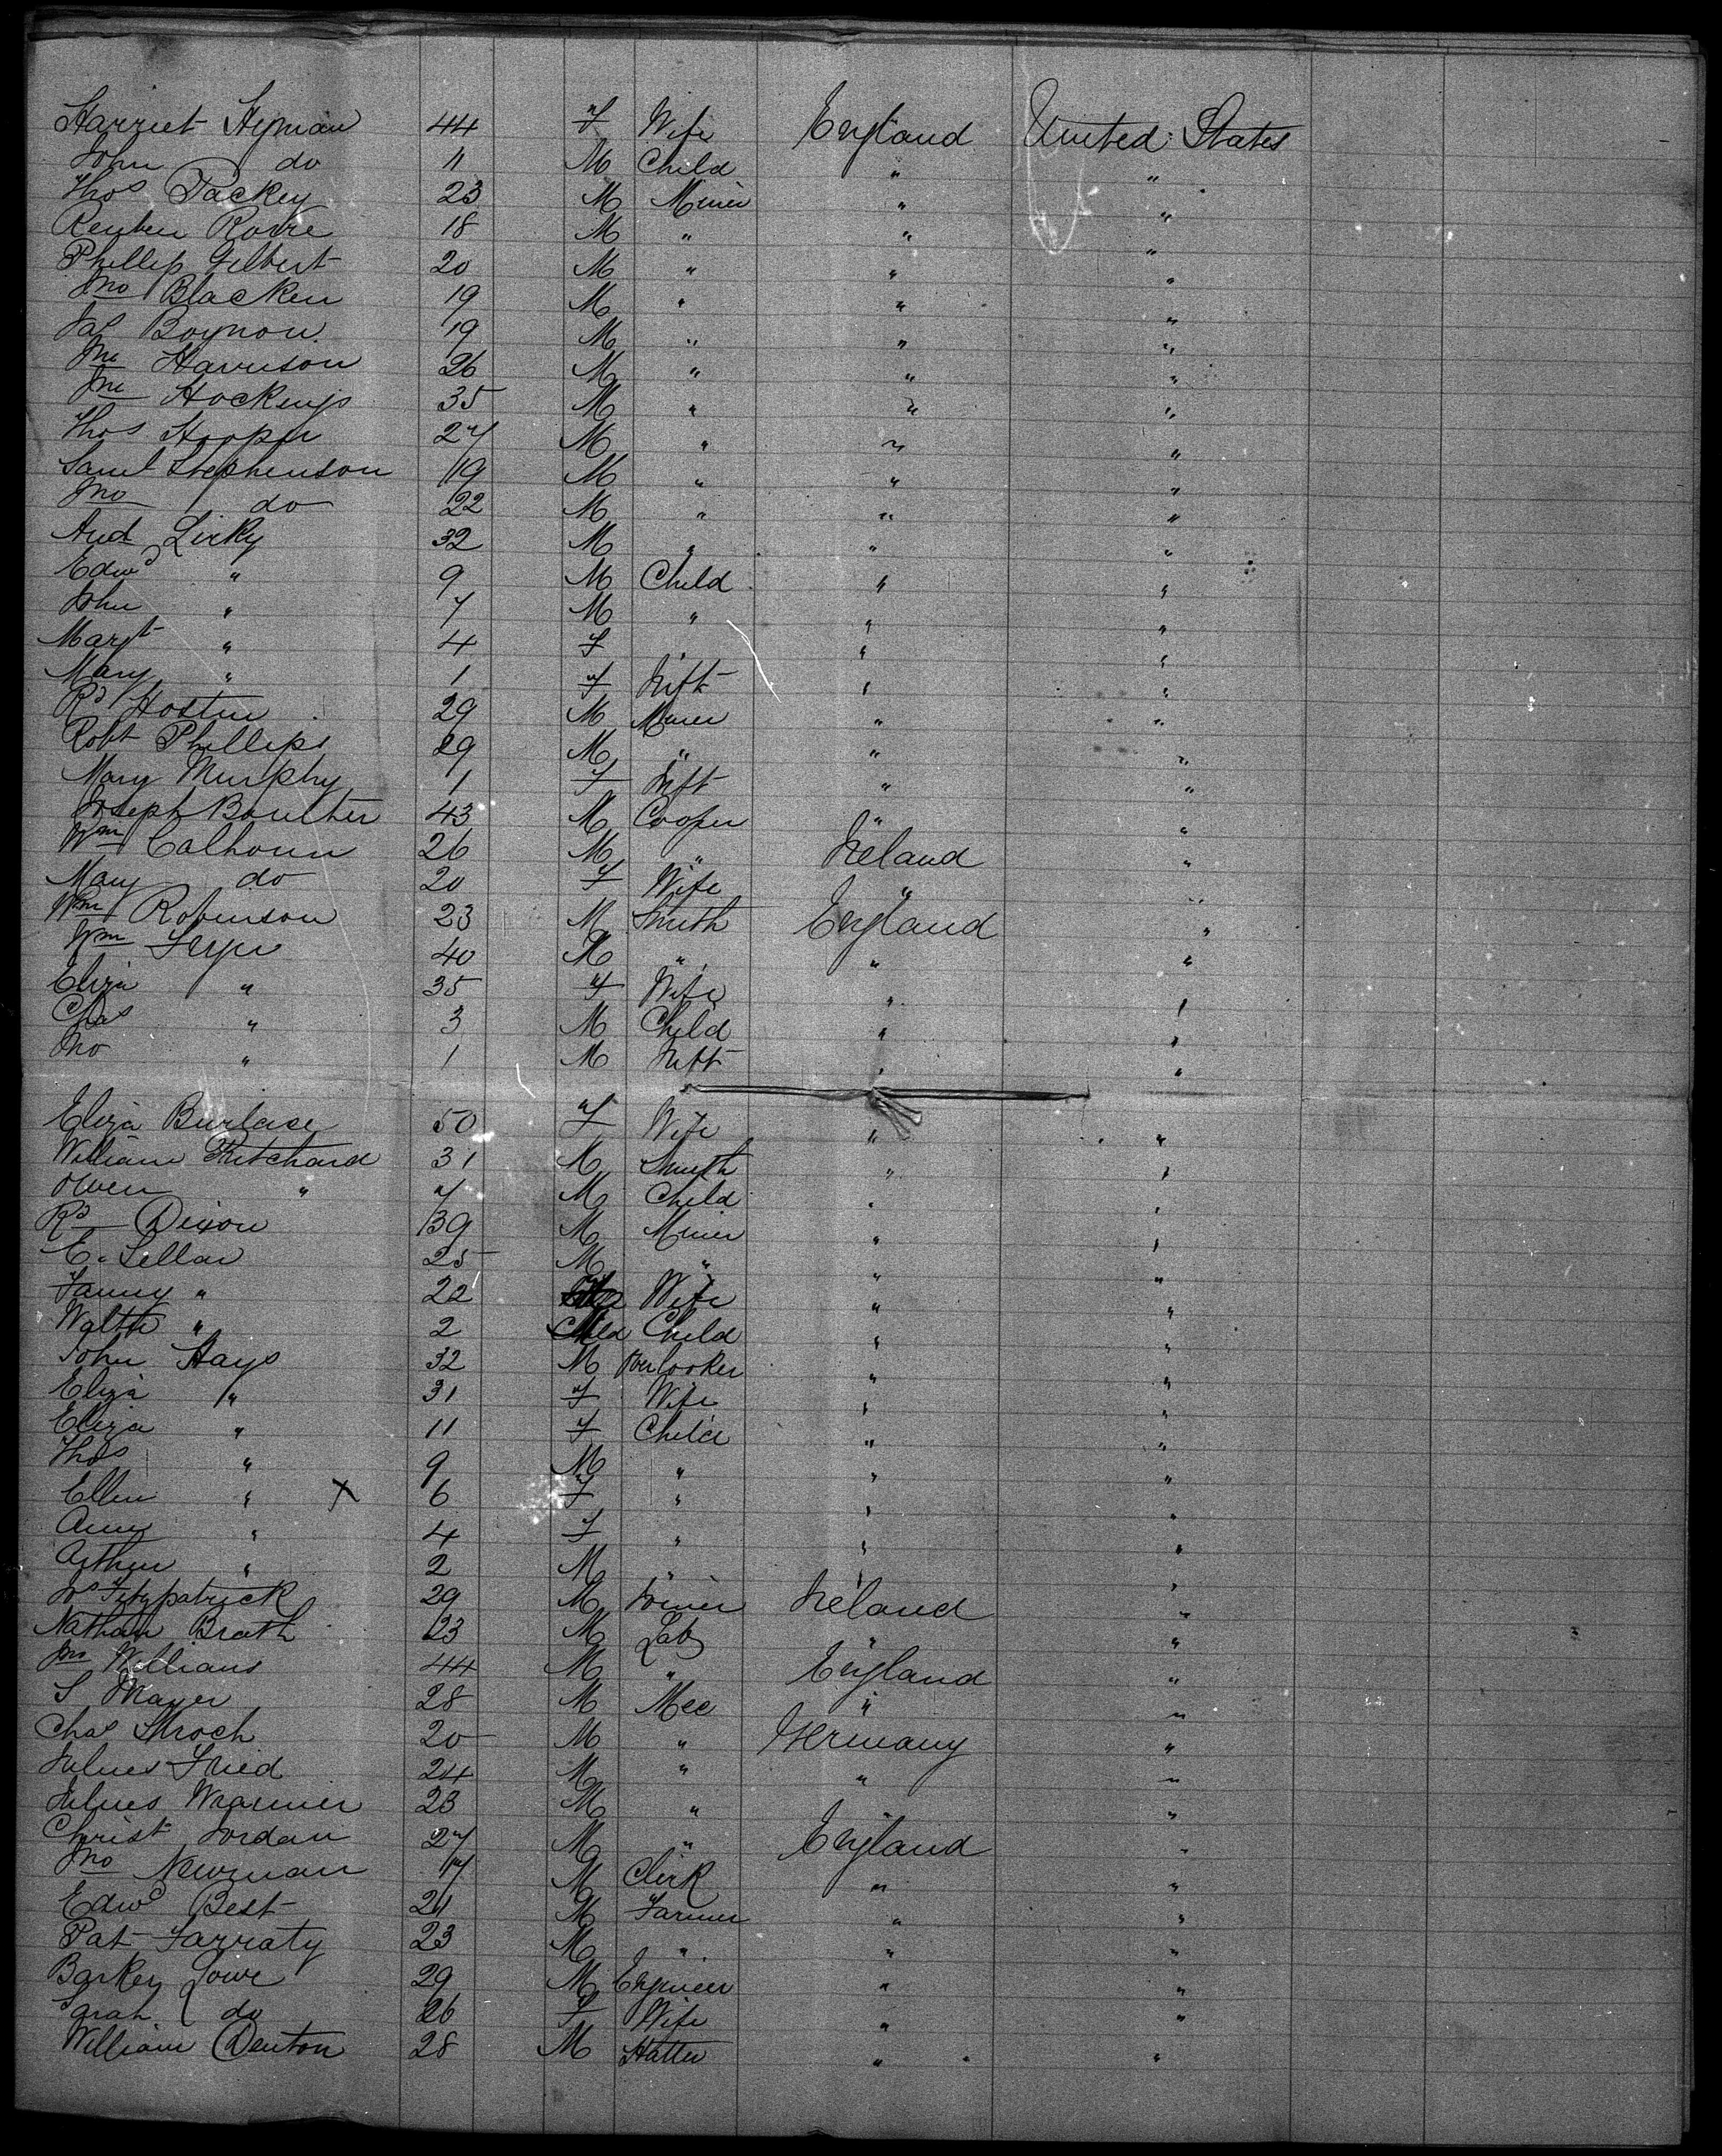 Harriet Hyman 44 F Wife England United States
John do 11 M Child " "
Thos Packey 23 M Miner " "
Reuben Rowe 18 M " " "
Phillip Gilbert 20 M " " "
Jno Blacken 19 M " " "
Jas Boynon 19 M " " "
Jno Harrison 26 M " " "
Jno Hockings 35 M " " "
Thos Hooper 27 M " " "
Saml Stephenson 19 M " " "
Jno do 22 M " " "
And Lirky 32 M " " "
Edwd " 9 M Child " "
John " 7 M " " "
Margt " 4 F " " "
Mary " 1 F Inft " "
Rd Hostin 29 M Miner " "
Robt Phillips 29 M " " "
Mary Murphy 1 F Inft " "
Joseph Boulter 43 M Cooper " "
Wm Calhoun 26 M " Ireland "
Mary do 20 F Wife " "
Wm Robinson 23 M Smith England "
Wm 40 M " " "
Eliza " 35 F Wife " "
Chas " 3 M Child " "
Jno " 1 M Inft " "
Eliza Burlase 50 F Wife " "
William Pritchard 31 M Smith " "
Owen " 7 M Child " "
Rd Dixon 39 M Miner " "
E. Sellar 25 M " " "
Fanny " 22 Wife " "
Walter " 2 Child Child " "
John Hays 32 M Overlooker " "
Eliza " 31 F Wife " "
Eliza " 11 F Child " "
Thos " 9 M " " "
Ellen " X 6 F " " "
Amy " 4 F " " "
Arthur " 2 M " " "
Jos Fitzpatrick 29 M Joiner Ireland "
Nathan Brath 23 M Lab " "
Jno Williams 44 M " England "
S Mayer 28 M Mec " "
Chas Shroch 20 M " Germany "
Julius Fried 24 M " " "
Julius Warmer 23 M " " "
Christ Jordan 27 M " England "
Jno Newman 17 M Clerk " "
Edwd Best 21 M Farmer " "
Pat Farraty 23 M " " "
Barkey Lowe 29 M Engineer " "
Sarah do 26 F Wife " "
William Denton 28 M Hatter " "